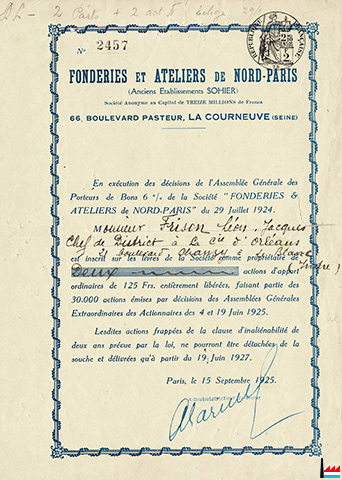 2 Parts + 2 act
No 2457
RÉPUBLIQUE FRANÇAISE
2
FONDERIES ET ATELIERS DE NORD-PARIS
(Anciens Etablissements SOHIER)
Société Anonyme au Capital de TREIZE MILLIONS de Francs
66, BOULEVARD PASTEUR, LA COURNEUVE (SEINE)
En exécution des décisions de l'Assemblée Générale des
Porteurs de Bons 6 % de la Société "FONDERIES &
ATELIERS DE NORD-PARIS" du 29 Juillet 1924.
Monsieur Frison Léon, Jacques
Chef de District à la Cie d'Orléans
21 boulevard Blanc
est inscrit sur les livres de la Société comme propriétaire de
(Indre)
Deux actions d'apport
ordinaires de 125 Frs. entièrement libérées, faisant partie des
30.000 actions émises par décisions des Assemblées Générales
Extraordinaires des Actionnaires des 4 et 19 Juin 1925.
Lesdites actions frappées de la clause d'inaliénabilité de
deux ans prévue par la loi, ne pourront être détachées de la
souche et délivrées qu'à partir du 19 Juin 1927.
Paris, le 15 Septembre 1925.